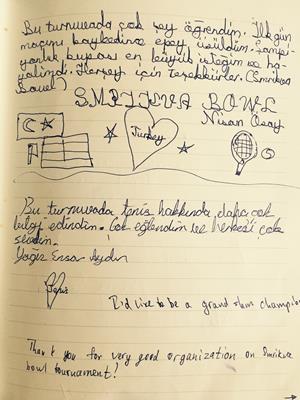 Bu turnuvada çok şey öğrendim. İlk gün
maçımı kaybedince epey üzüldüm. Şampi-
yonluk kupası en büyük isteğim ve ha-
yalimdi. Herşey için teşekkürler. (Smrikva
Bowl)
SMRIKVA BOWL
Nisan Özay
Turkey
Bu turnuvada tenis hakkında daha çok
bilgi edindim. Çok eğlendim ve herkesi çok
sevdim.
Yağız Ensar Aydın
I'd like to be a grand slam champion
Thank you for very good organization on Smrikva
bowl tournament!